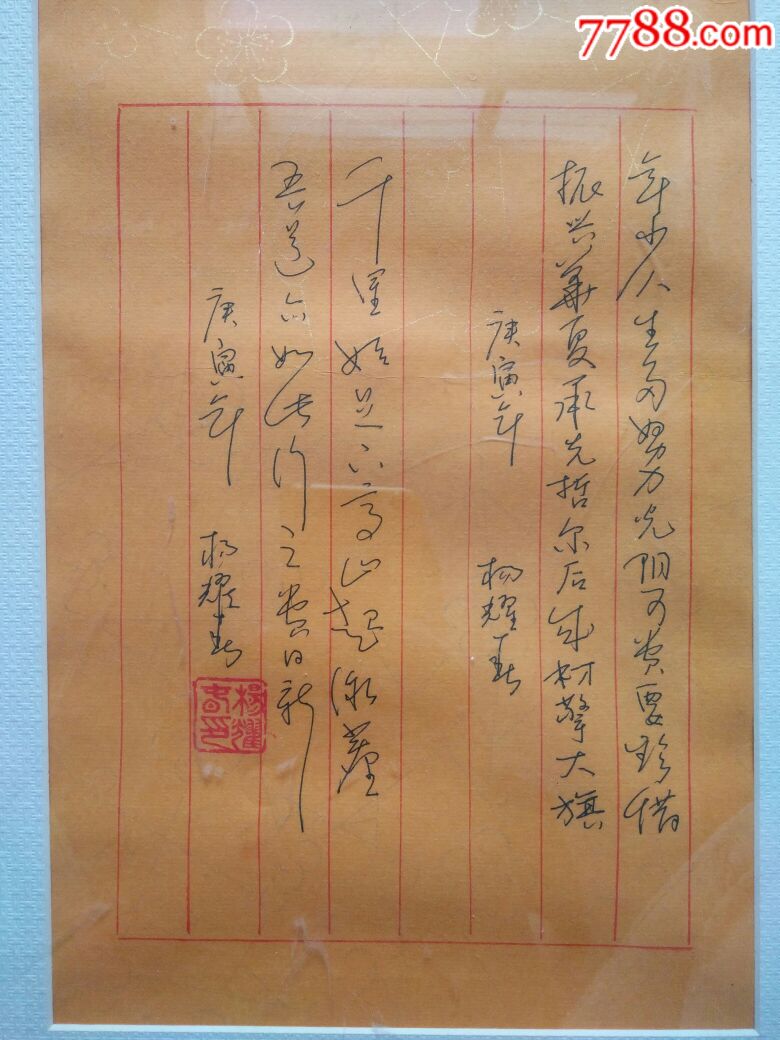 7788.com
年少人生多努力光阴可贵要珍惜
振兴华夏承先哲尔后成材擎大旗
庚寅年 杨耀
千里始足下高山起微尘
吾道亦如此行之贵日新
庚寅年 杨耀
杨耀